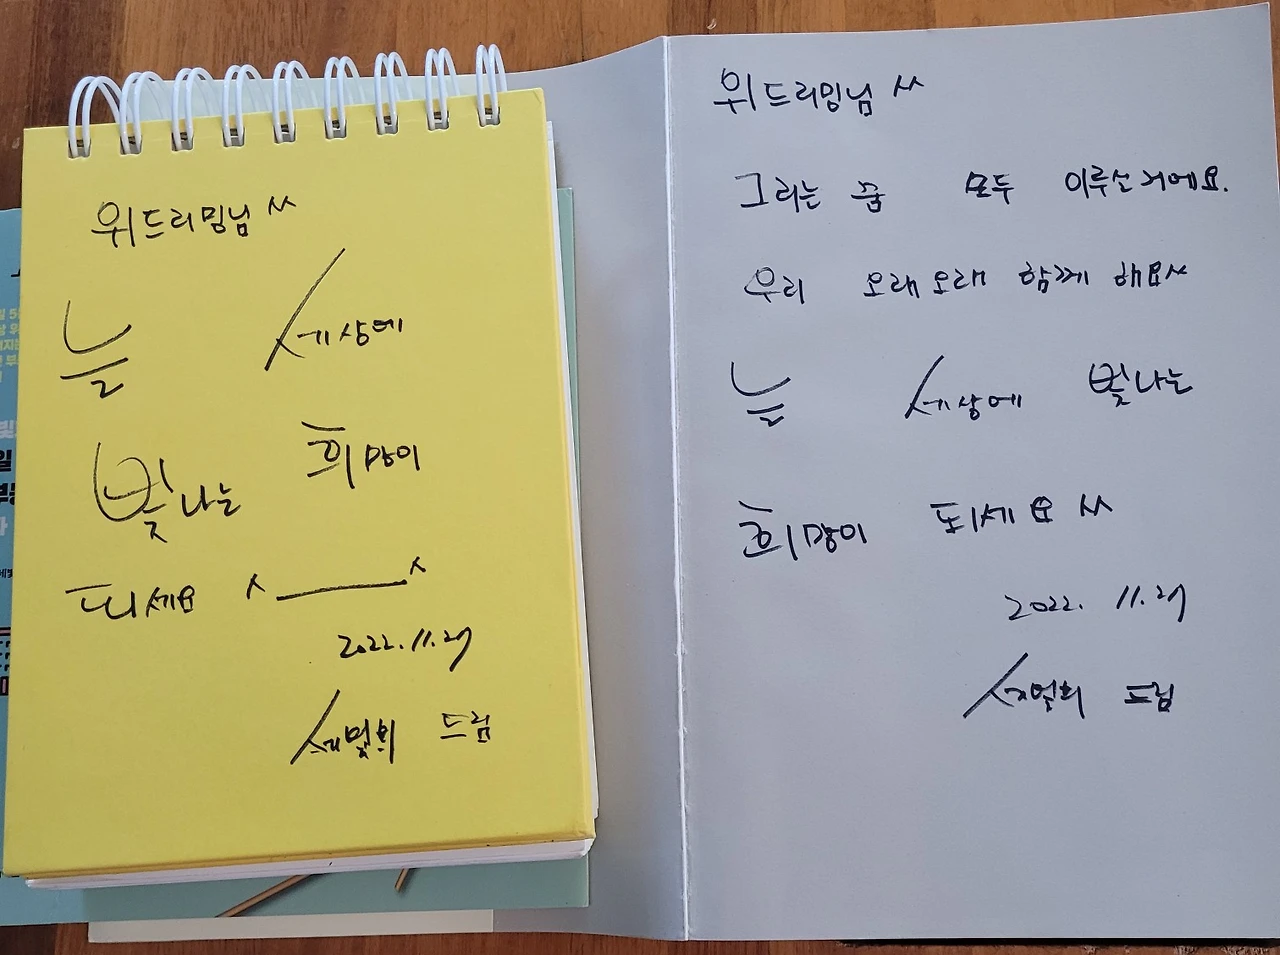 위드리밍님 ^^
늘 세상에
빛나는 희망이
되세요 ^__^
2022.11.29
세빛희 드림
위드리밍님 ^^
그리는 꿈 모두 이루실거에요.
우리 오래오래 함께 해요^^
늘 세상에 빛나는
희망이 되세요 ^^
2022. 11. 29
세빛희 드림